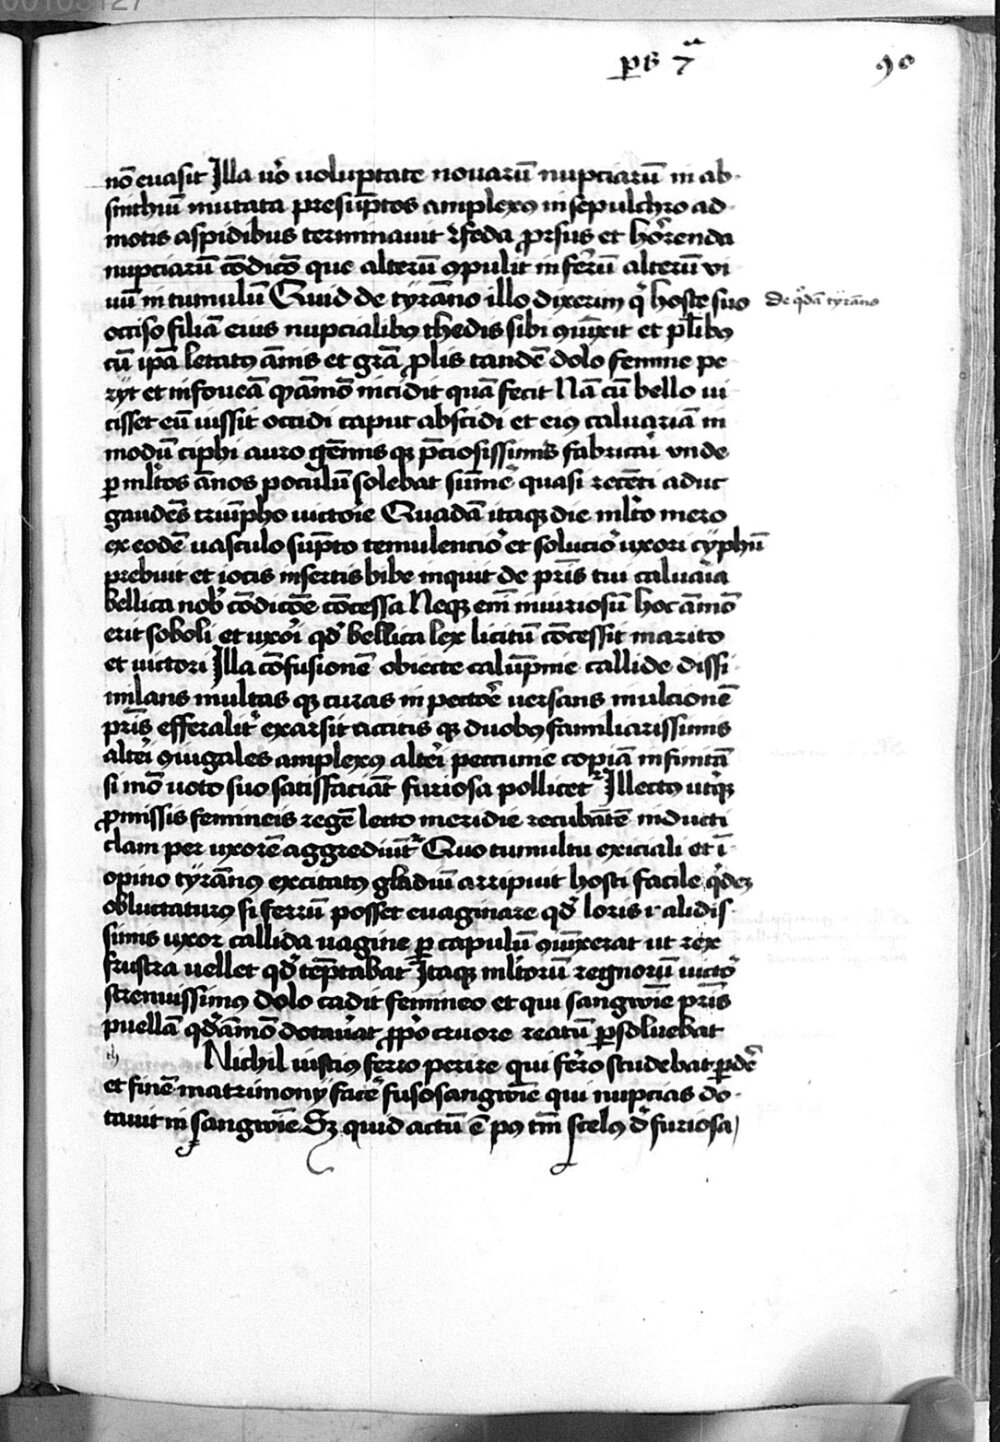 00105127
ps 7a 90
nō euasit Illa uo voluptate nouarū nupciarū in ab
sinthiū mutata presūptos amplexꝰ in sepulchro ad
motis aspidibus terminauit feda ꝓrsus et horrenda
nupciarū cōdicō que alterū ꝯpulit inferū alterū vi
uū in tumulū Quid de tyrāno illo dixerim qͥ hoste suo
De qͦdā tyrāno
occiso filiā eius nupcialibꝰ thedis sibi ꝯiūxit et plibꝰ
cū ipā letatꝰ āmis et grā ꝓlis tandē dolo femine pe
ryt et in foueā incidit quā fecit Nā cū bello ui
cisset eū iussit occidi caput abscidi et eiꝰ caluariā in
modū ciphi auro gēmis qꝫ p̄ciosissimis fabricari vnde
ꝑ ml̄tos ānos poculū solebat sūme quasi recēti adhuc
gaudēs triūpho uictorie Quadā itaqꝫ die ml̄to mero
ex eodē uasculo sūpto temulencior et solucior uxori cyphū
prebuit et iocis insertis bibe inquit de pr̄is tui caluaria
bellica nob cōdicōe cōcessa Neqꝫ em̄ iniuriosū hoc āmō
erit soboli et uxori qd bellica lex licitū cōcessit marito
et uictori Illa cōfusionē obiecte calūpnie callide dissi
milans multas qꝫ curas in pectore uersans mulcionē
pr̄is efferalit exarsit accitis qꝫ duobꝰ familiarissimis
alteri ꝯiugales amplexꝰ alteri peccunie copiā infinitā
si mō uoto suo satisfaciāt furiosa pollicet Illectꝰ utqꝫ
ꝓmissis femineis regē lecto meridie recubātē inducti
clam per uxorē aggrediūt Quo tumultu exiciali et ī
opino tyrānꝰ excitatꝰ gladiū arripuit hosti facile qͥdeꝫ
obluctaturꝰ si ferrū posset euaginare qd loris ualidis
simis uxor callida uagine ꝑ capulū ꝯiūxerat ut rex
frustra uellet qd tēptabat Itaqꝫ ml̄torū regnorū uictor
strenuissimꝰ dolo cadit femineo et qui sangwīe pr̄is
puellā qdāmō dotauerat ꝓpo cruore reatū ꝑsoluebat
Nichil iustiꝰ ferro perire qui fero studebat ꝑdere
et finē matrimony face fuso sangwīe qui nupcias do
tauit in sangwīe Sꝫ quid actū ē pꝰ tm̄ scelꝰ d furiosa